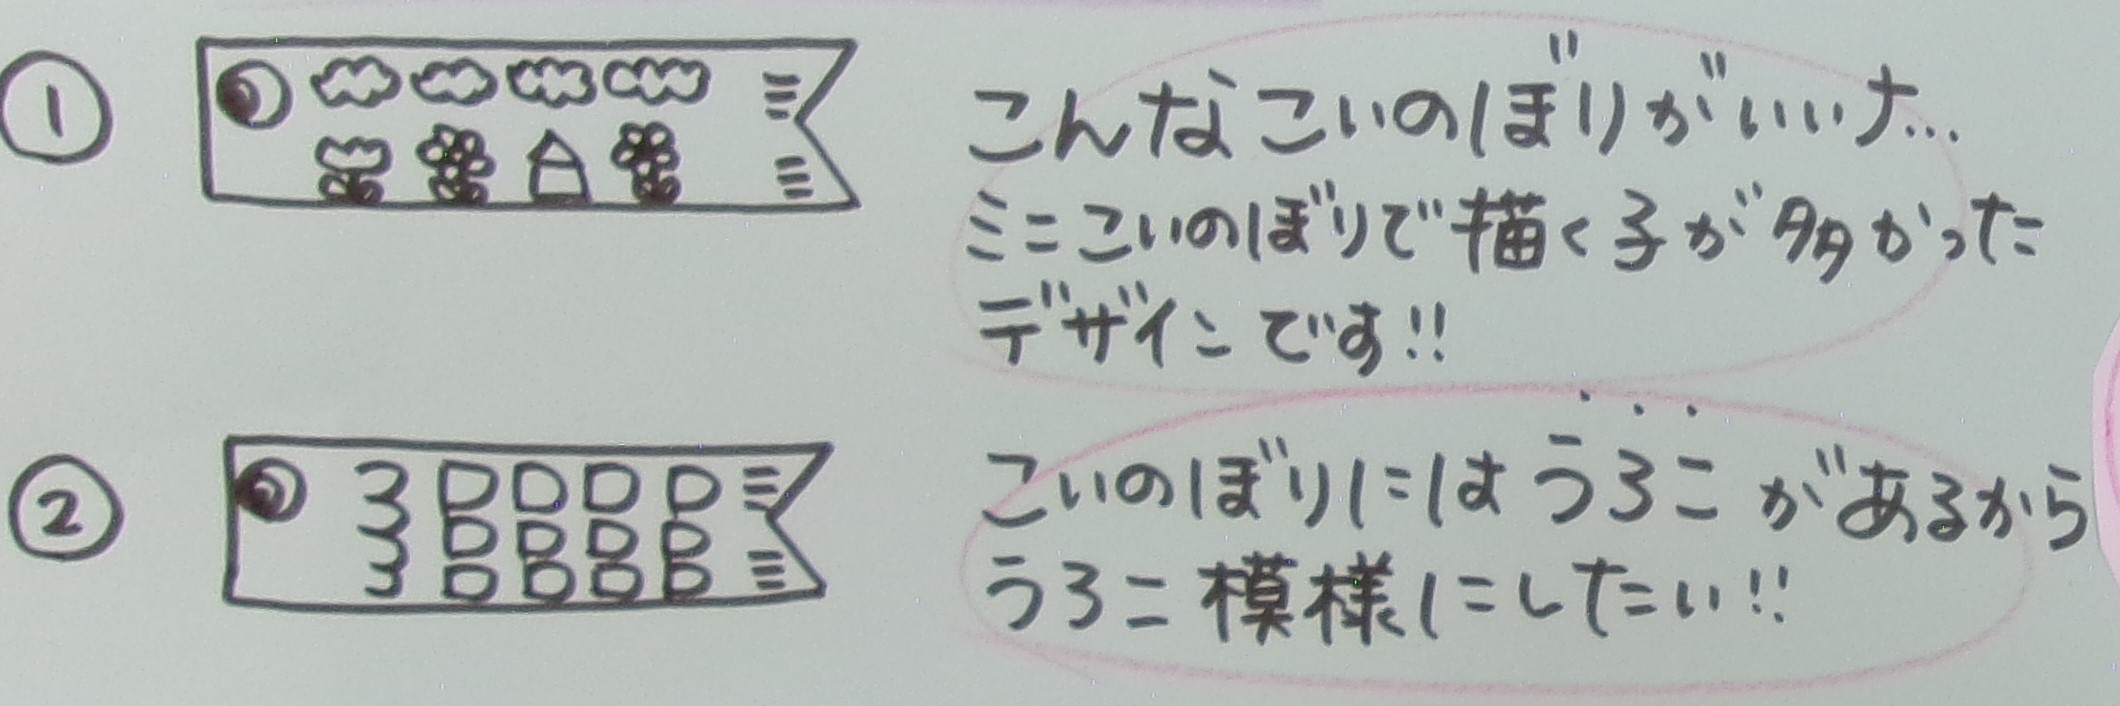 ①
こんなこいのぼりがいいナ…
ミニこいのぼりで描く子が多かった
デザインです!!
②
こいのぼりにはうろこがあるから
うろこ模様にしたい!!